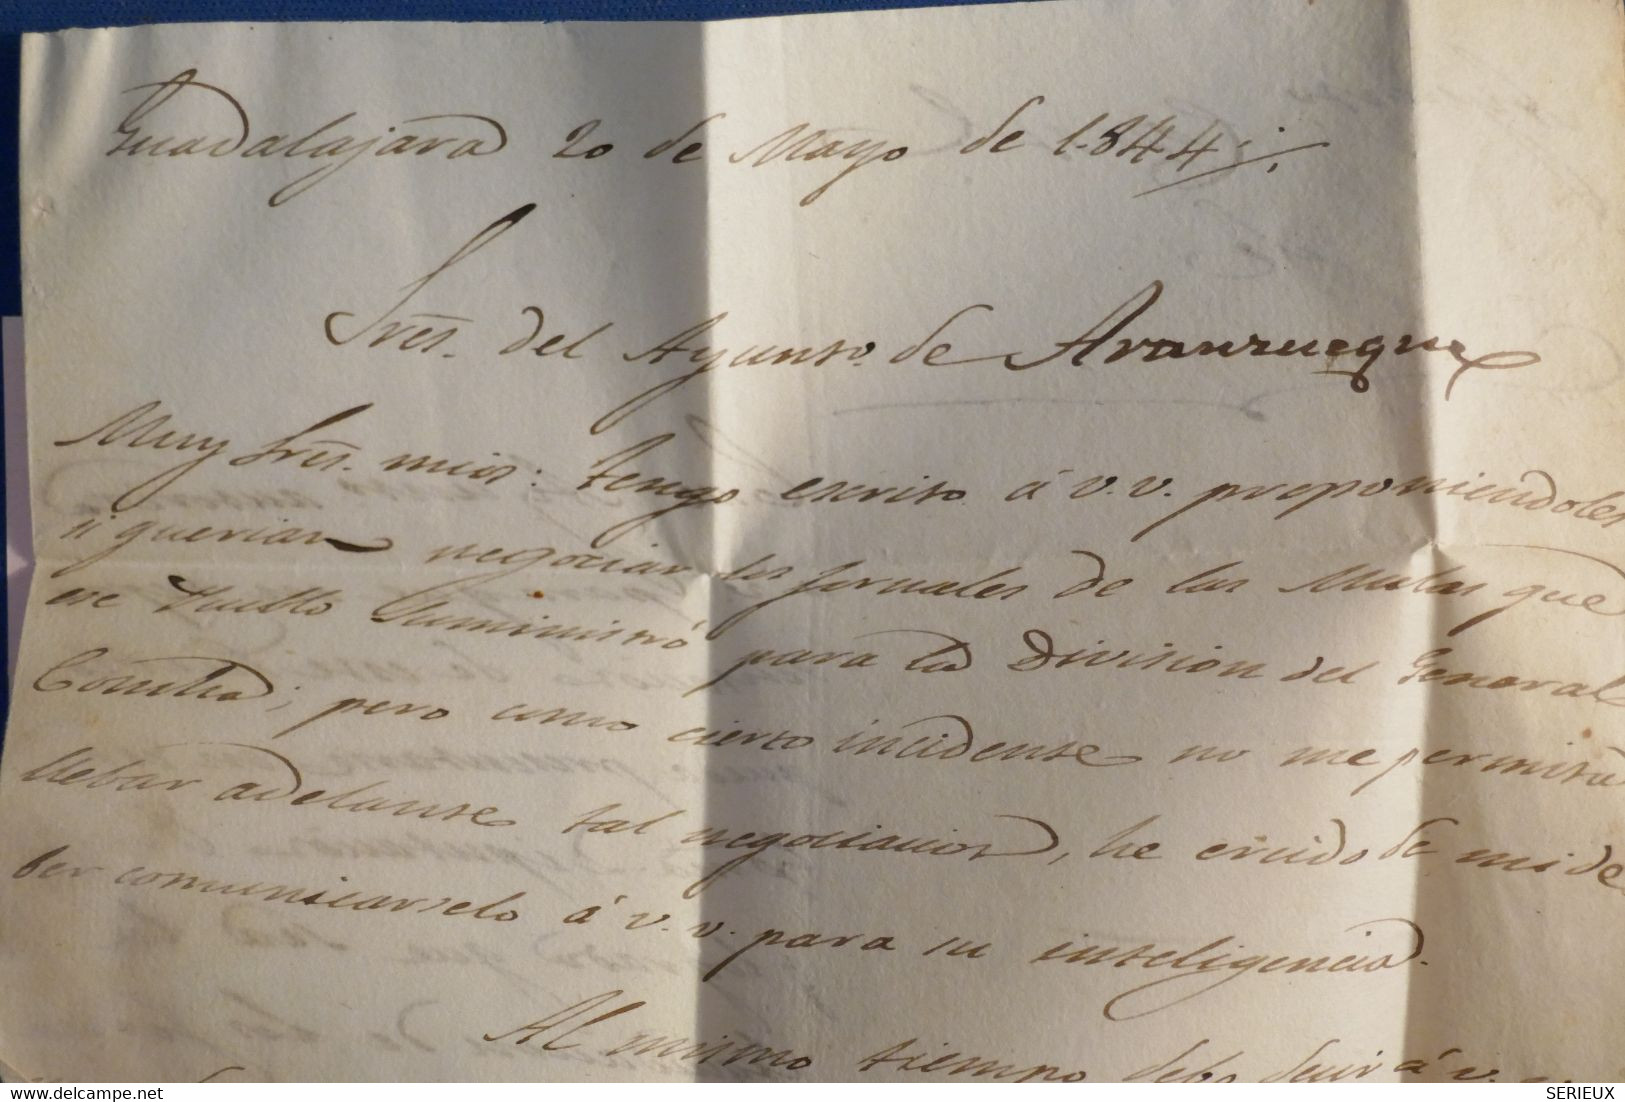 Guadalajara 20 de Mayo de 1.844
Sres. del Ayunto. de Aranzueque
Muy Sres. mios: tengo escrito á v.v. proponiendoles
si querian negociar los jornales de las Mulas que
ese Pueblo suministró para la Division del General
Concha; pero como cierto incidente no me permita
llebar adelante tal negociacion, he creido de mi de
ber comunicarselo á v.v. para su inteligencia.
Al mismo tiempo debo decir á v.
delcampe.net
SERIEUX